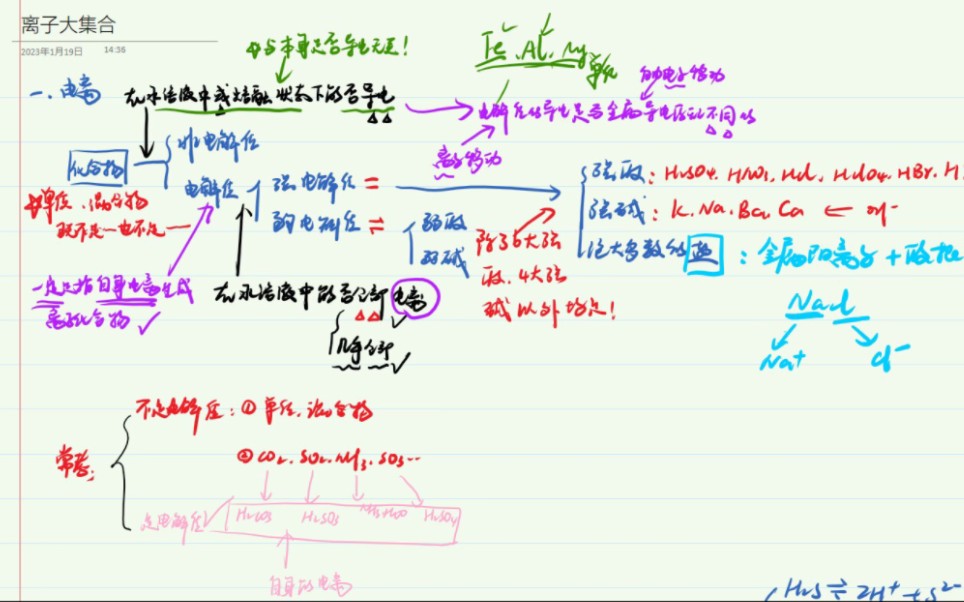 离子大集合
2023年1月19日 14:36
与本身是否导电无关!
Fe、Al、Mg单质
自由电子移动
一、电离
在水溶液中或熔融状态下的能否导电
电解质的导电是否金属导电 不同的
离子移动
化合物
非电解质
电解质
强电解质 =
弱电解质 ⇌
弱酸
弱碱
单质、混合物
既不是一也不是一
强酸:H₂SO₄、HNO₃、HCl、HClO₄、HBr、H
强碱:K、Na、Ba、Ca ← OH⁻
绝大多数的盐:金属阳离子+酸根
除6大强
酸、4大强
碱以外均是!
一定是指自身电离生成
离子化合物 ✓
在水溶液中的能否全部电离
几乎全部 ✓
NaCl
Na⁺ Cl⁻
常考:
不是电解质:①单质、混合物
②CO₂、SO₂、NH₃、SO₃…
是电解质 ✓ H₂CO₃ H₂SO₃ NH₃·H₂O H₂SO₄
自身的电离
H₂S ⇌ 2H⁺ + S²⁻